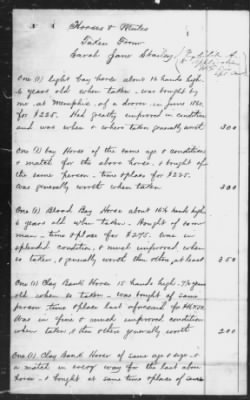 Horses & Mules
Taken From
Sarah Jane
One (1) Light Bay horse about 16 hands high
6 years old when taken - was bought by
me at Memphis, of a drover in June 1860,
for $225. Had greatly improved in condition
and was when & where taken generally worth 300
One (1) bay Horse of the same age & condition
& match for the above horse, & bought of
the same person - time & place for $225.
Was generally worth when taken 300
One (1) Blood Bay Horse about 16½ hands high
6 years old when taken - Bought of same
man - time & place for $275. was in
splendid condition, & much improved when
so taken, & generally worth then at least 350
One (1) Clay Bank Horse 15 hands high
old when so taken - was bought of same
person time & place last aforesaid for
Was in fine & much improved condition
when taken & then generally worth 200
One (1) Clay Bank Horse of same age &
a match in every way for the last above
horse - & bought at same time place of same